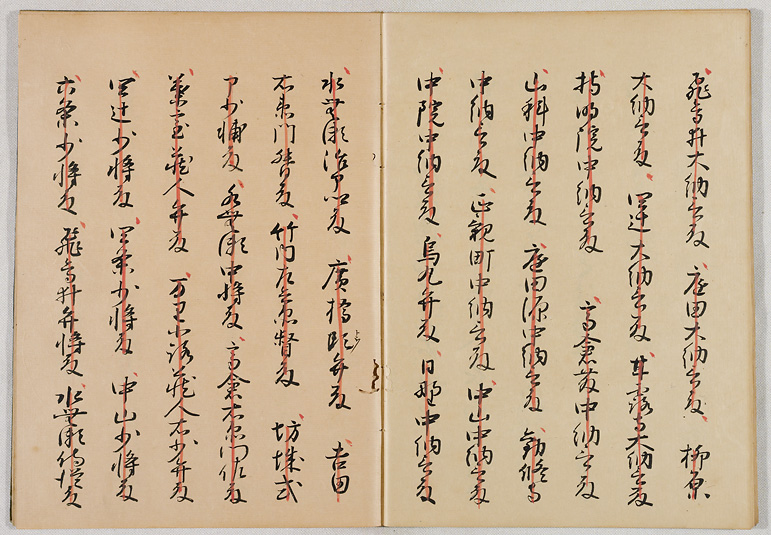 飛鳥井大納言殿 庭田大納言殿 柳原
大納言殿 四辻大納言殿 甘露寺大納言殿
持明院中納言殿 高倉藤中納言殿
山科中納言殿 庭田源中納言殿 勧修寺
中納言殿 正親町中納言殿 中山中納言殿
中院中納言殿 烏丸弁殿 日野中納言殿
水無瀬治部卿殿 廣橋頭弁殿 吉田
右衛門督殿 竹内左兵衛督殿 坊城式
部少輔殿 水無瀬中将殿 高倉右衛門佐殿
葉室蔵人弁殿 万里小路蔵人右少弁殿
四辻少将殿 四条少将殿 中山少将殿
六条少将殿 飛鳥井少将殿 水無瀬侍従殿